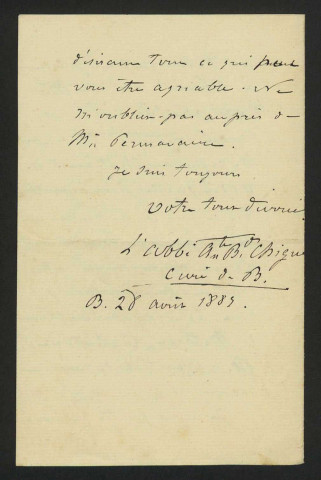 désirant tout ce qui peut
vous être agréable. Ne
m'oubliez pas auprès de
Mr
je suis toujours
votre tout dévoué.
L'abbé Ant. Bd.
Curé de B.
B. 28 août 1889.